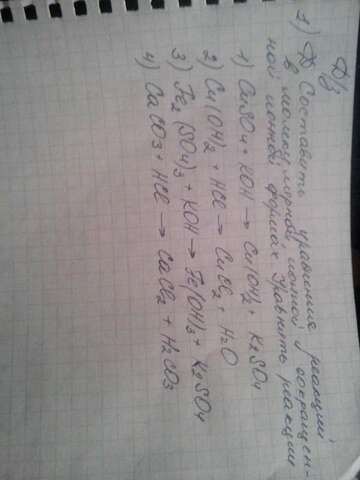 Д/з
1) Составить уравнения реакций
в молекулярной, ионной, сокращен-
ной ионной формах. Уравнить реакции
1) CuSO4 + KOH → Cu(OH)2 + K2SO4
2) Cu(OH)2 + HCl → CuCl2 + H2O
3) Fe2(SO4)3 + KOH → Fe(OH)3 + K2SO4
4) CaCO3 + HCl → CaCl2 + H2CO3